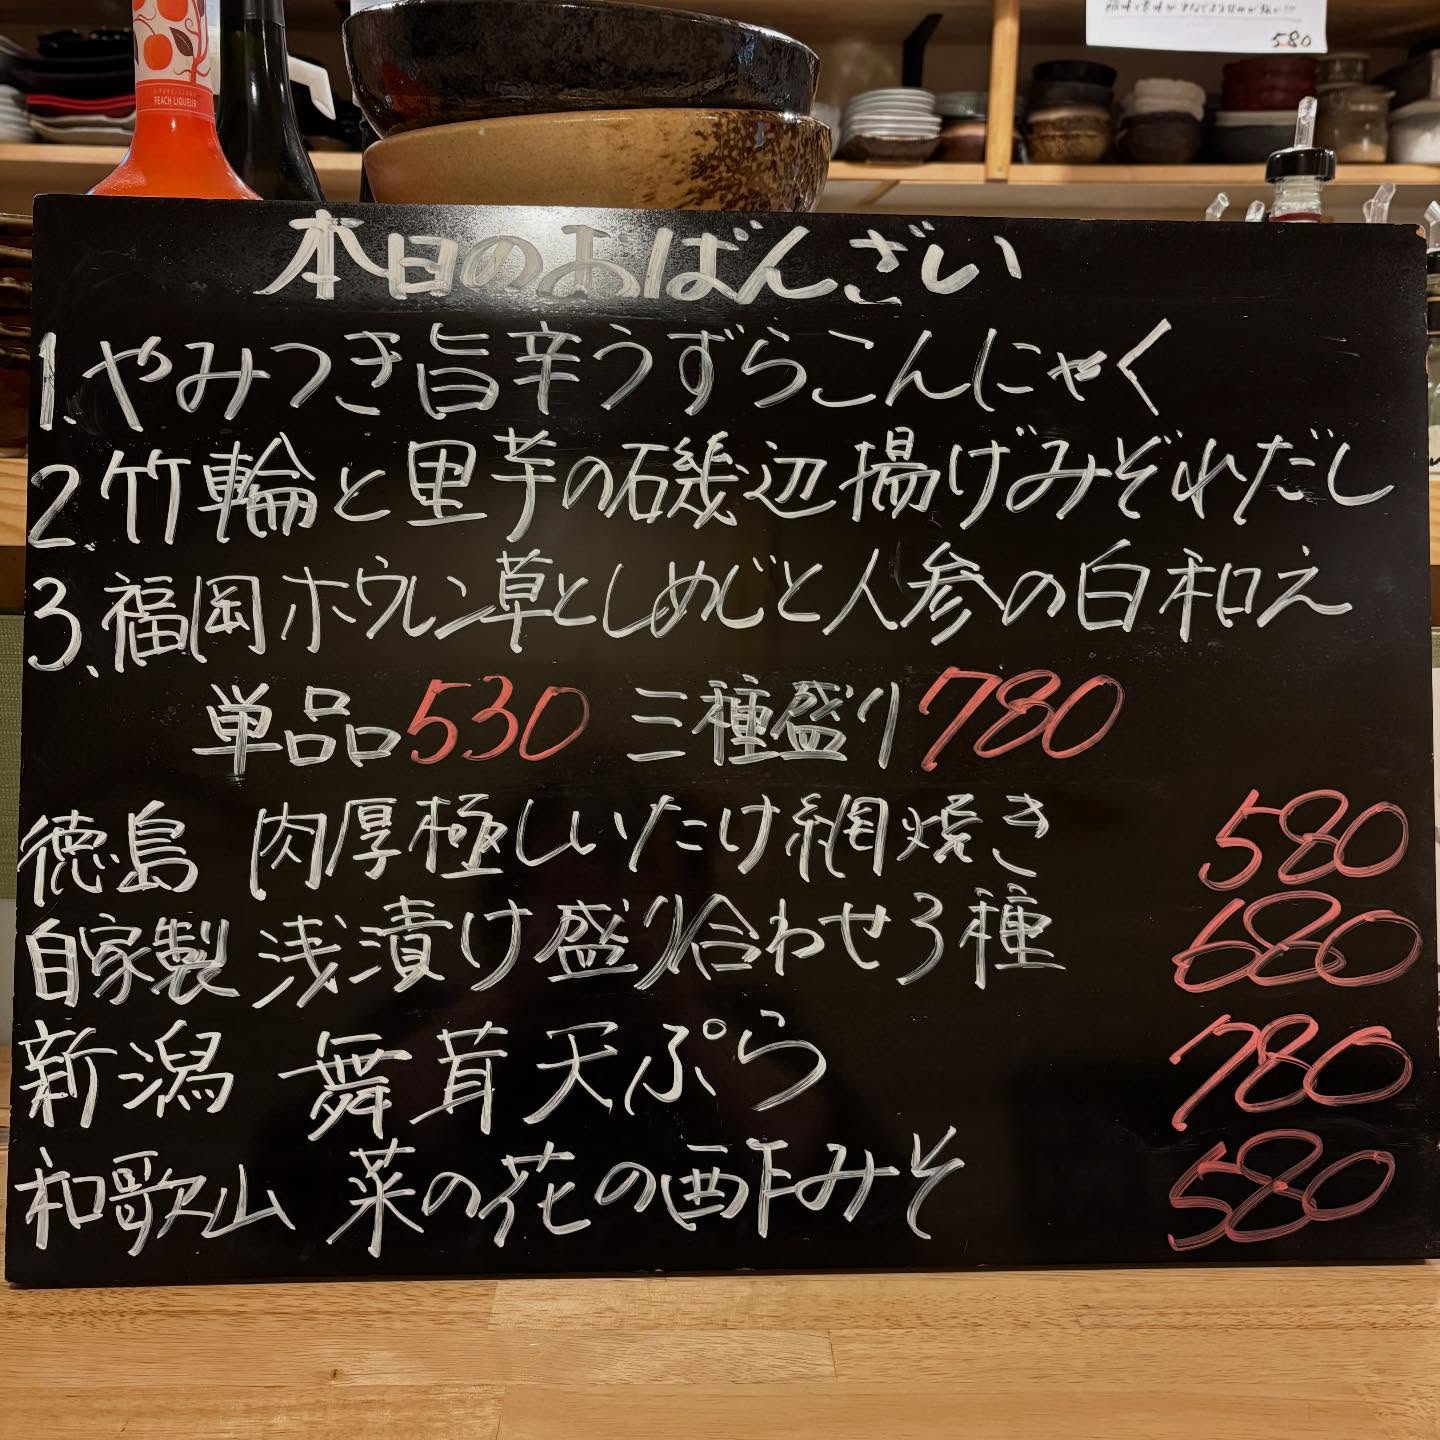 PEACH LIQUEUR
580
本日のおばんざい
1.やみつき旨辛うずらこんにゃく
2.竹輪と里芋の磯辺揚げみぞれだし
3.福岡ホウレン草としめじと人参の白和え
単品530 三種盛り780
徳島 肉厚極しいたけ網焼き 580
自家製 浅漬け盛り合わせ3種 680
新潟 舞茸天ぷら 780
和歌山 菜の花の酢みそ 580